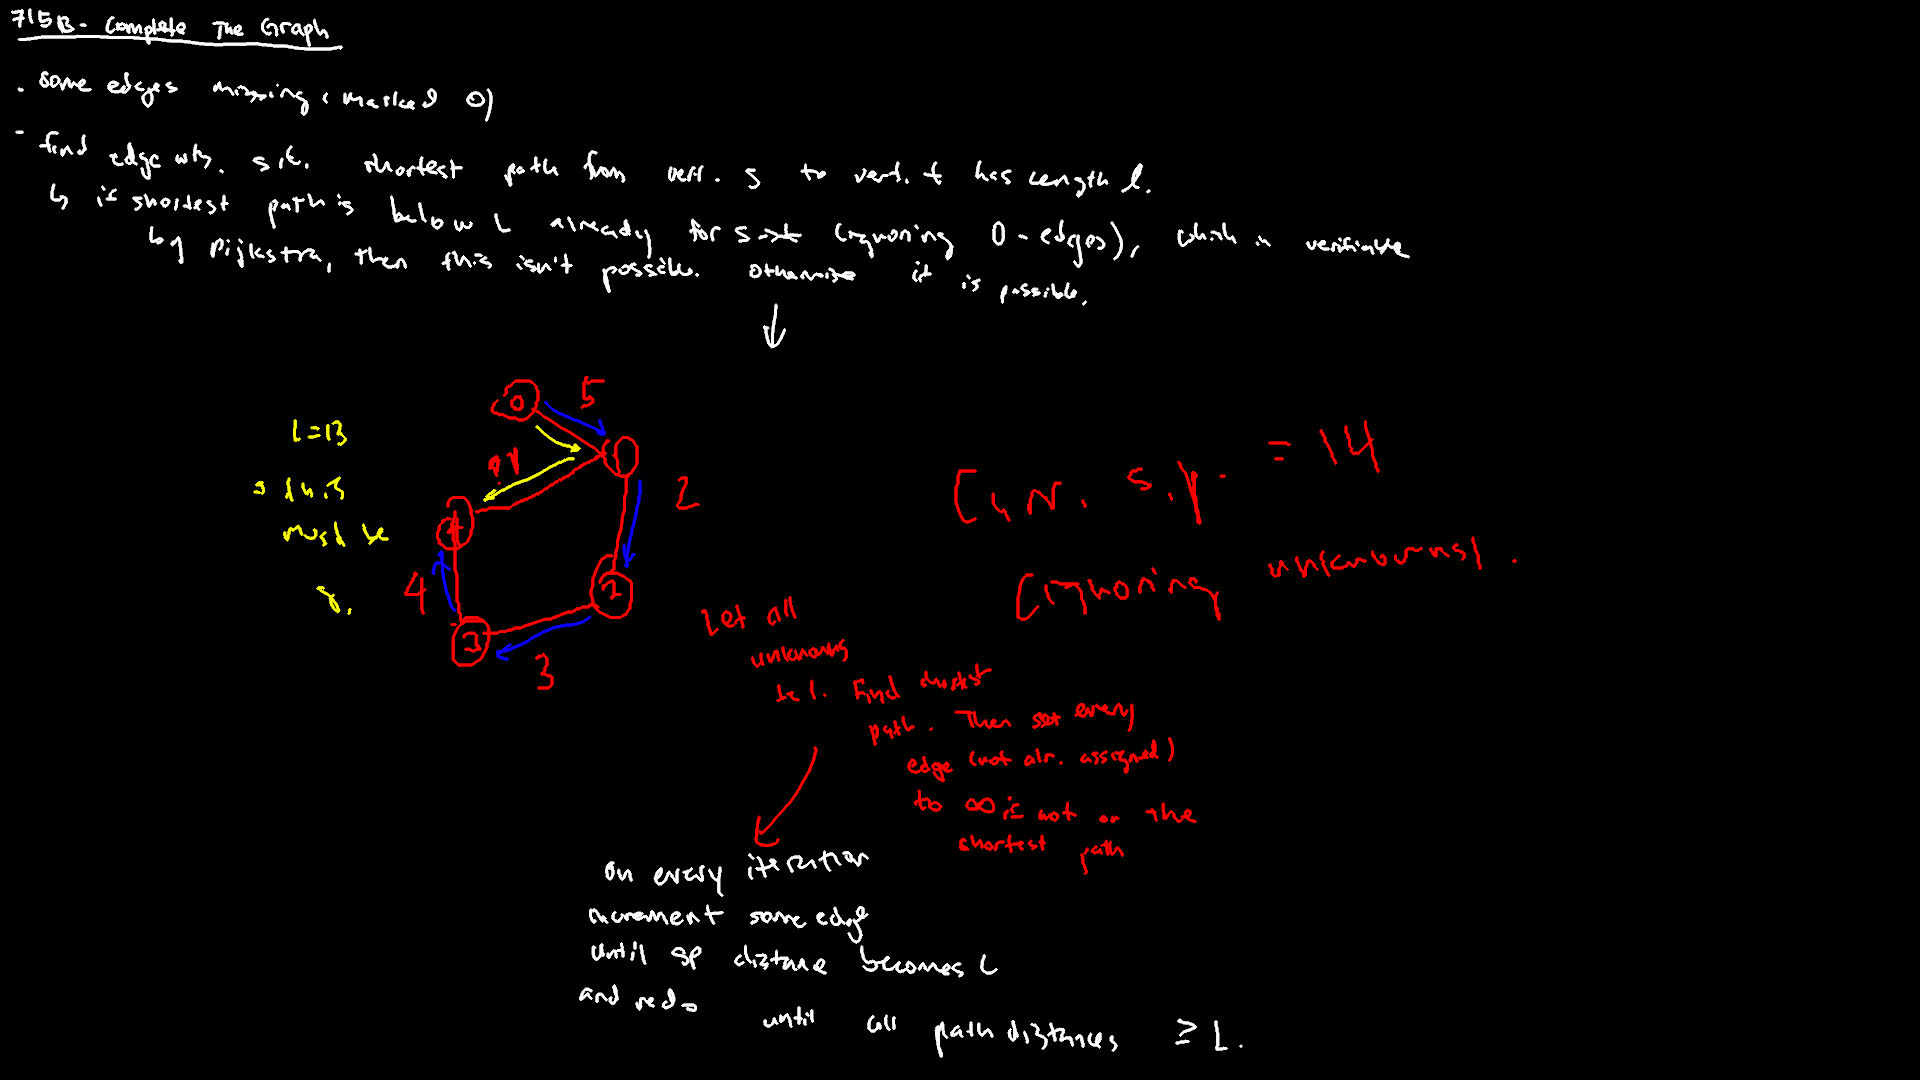 715B - Complete The Graph
. some edges missing (marked 0)
- find edge wts. s.t. shortest path from vert. s to vert. t has length L.
↳ if shortest path is below L already for s→t (ignoring 0-edges), which is verifiable
by Dijkstra, then this isn't possible. otherwise it is possible.
0
5
L=13
1
= 14
s.p.
2
must be
4
4
2
(ignoring unknowns).
8.
3
3
Let all
unknowns
be 1. Find shortest
path. Then set every
edge (not alr. assigned)
to ∞ if not on the
shortest path
on every iteration
increment some edge
until SP distance becomes L
and redo
until all path distances ≥ L.